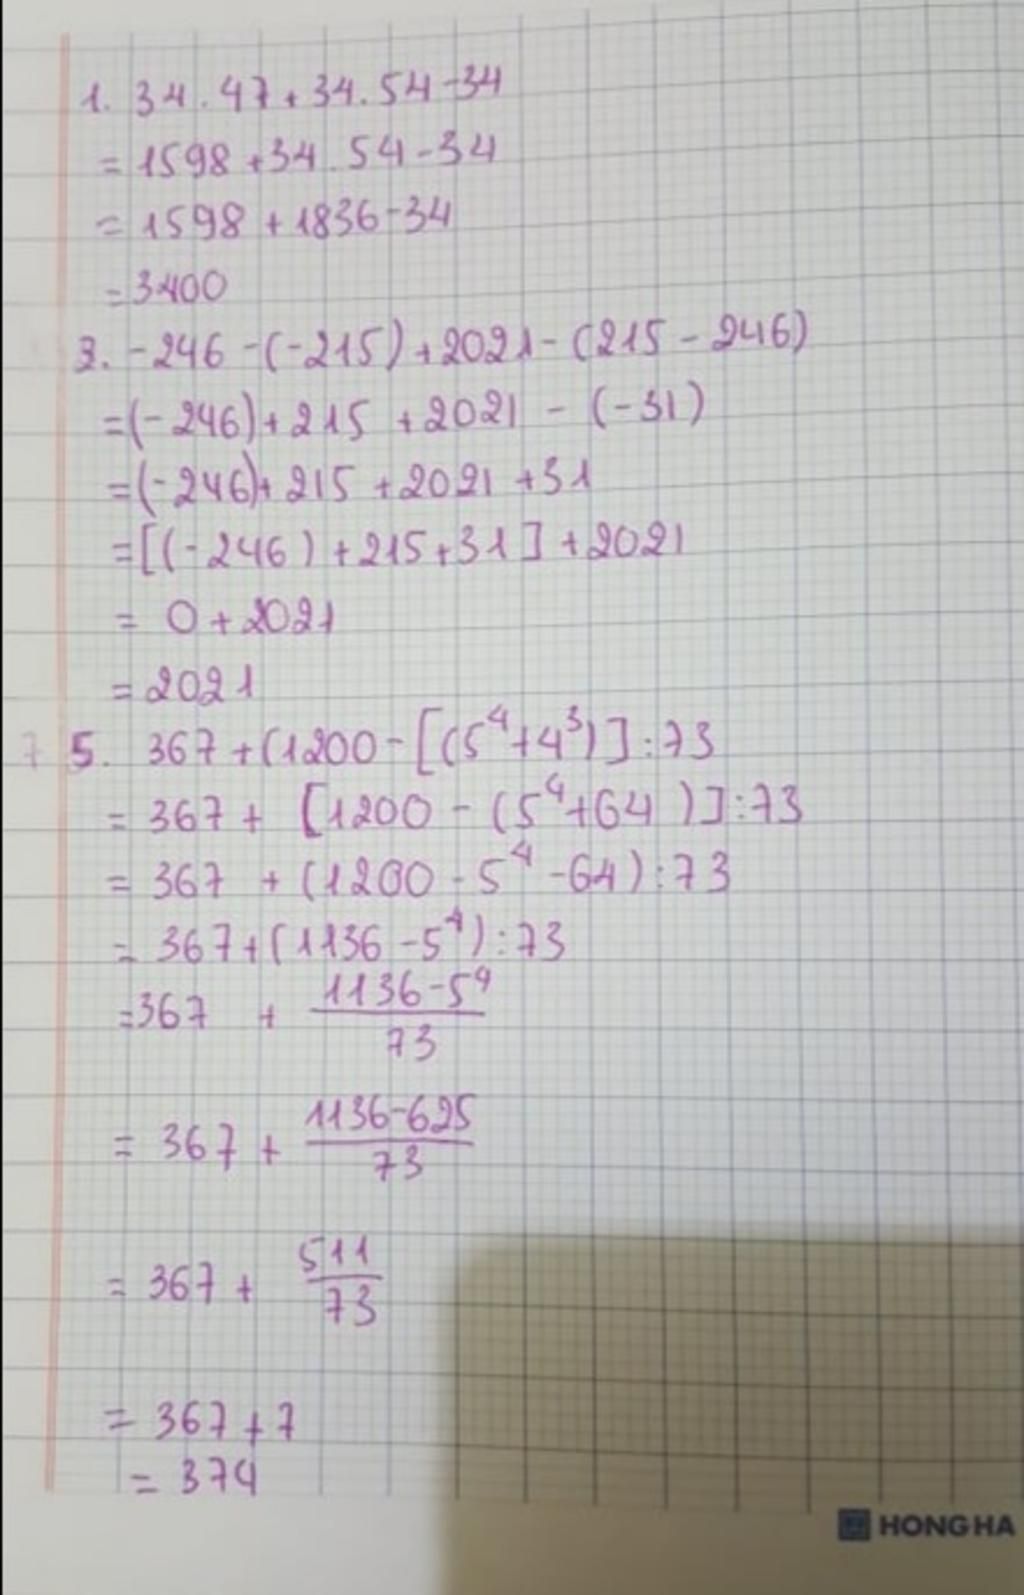 1. 34.47+34.54-34
=1598+34.54-34
=1598+1836-34
=3400
3. -246-(-215)+2021-(215-246)
=(-246)+215+2021-(-31)
=(-246)+215+2021+31
=[(-246)+215+31]+2021
=0+2021
=2021
7 5. 367+(1200-[(5⁴+4³)]:73
=367+[1200-(5⁴+64)]:73
=367+(1200-5⁴-64):73
=367+(1136-5⁴):73
=367+\frac{1136-5⁴}{73}
=367+\frac{1136-625}{73}
=367+\frac{511}{73}
=367+7
=374
HONG HA